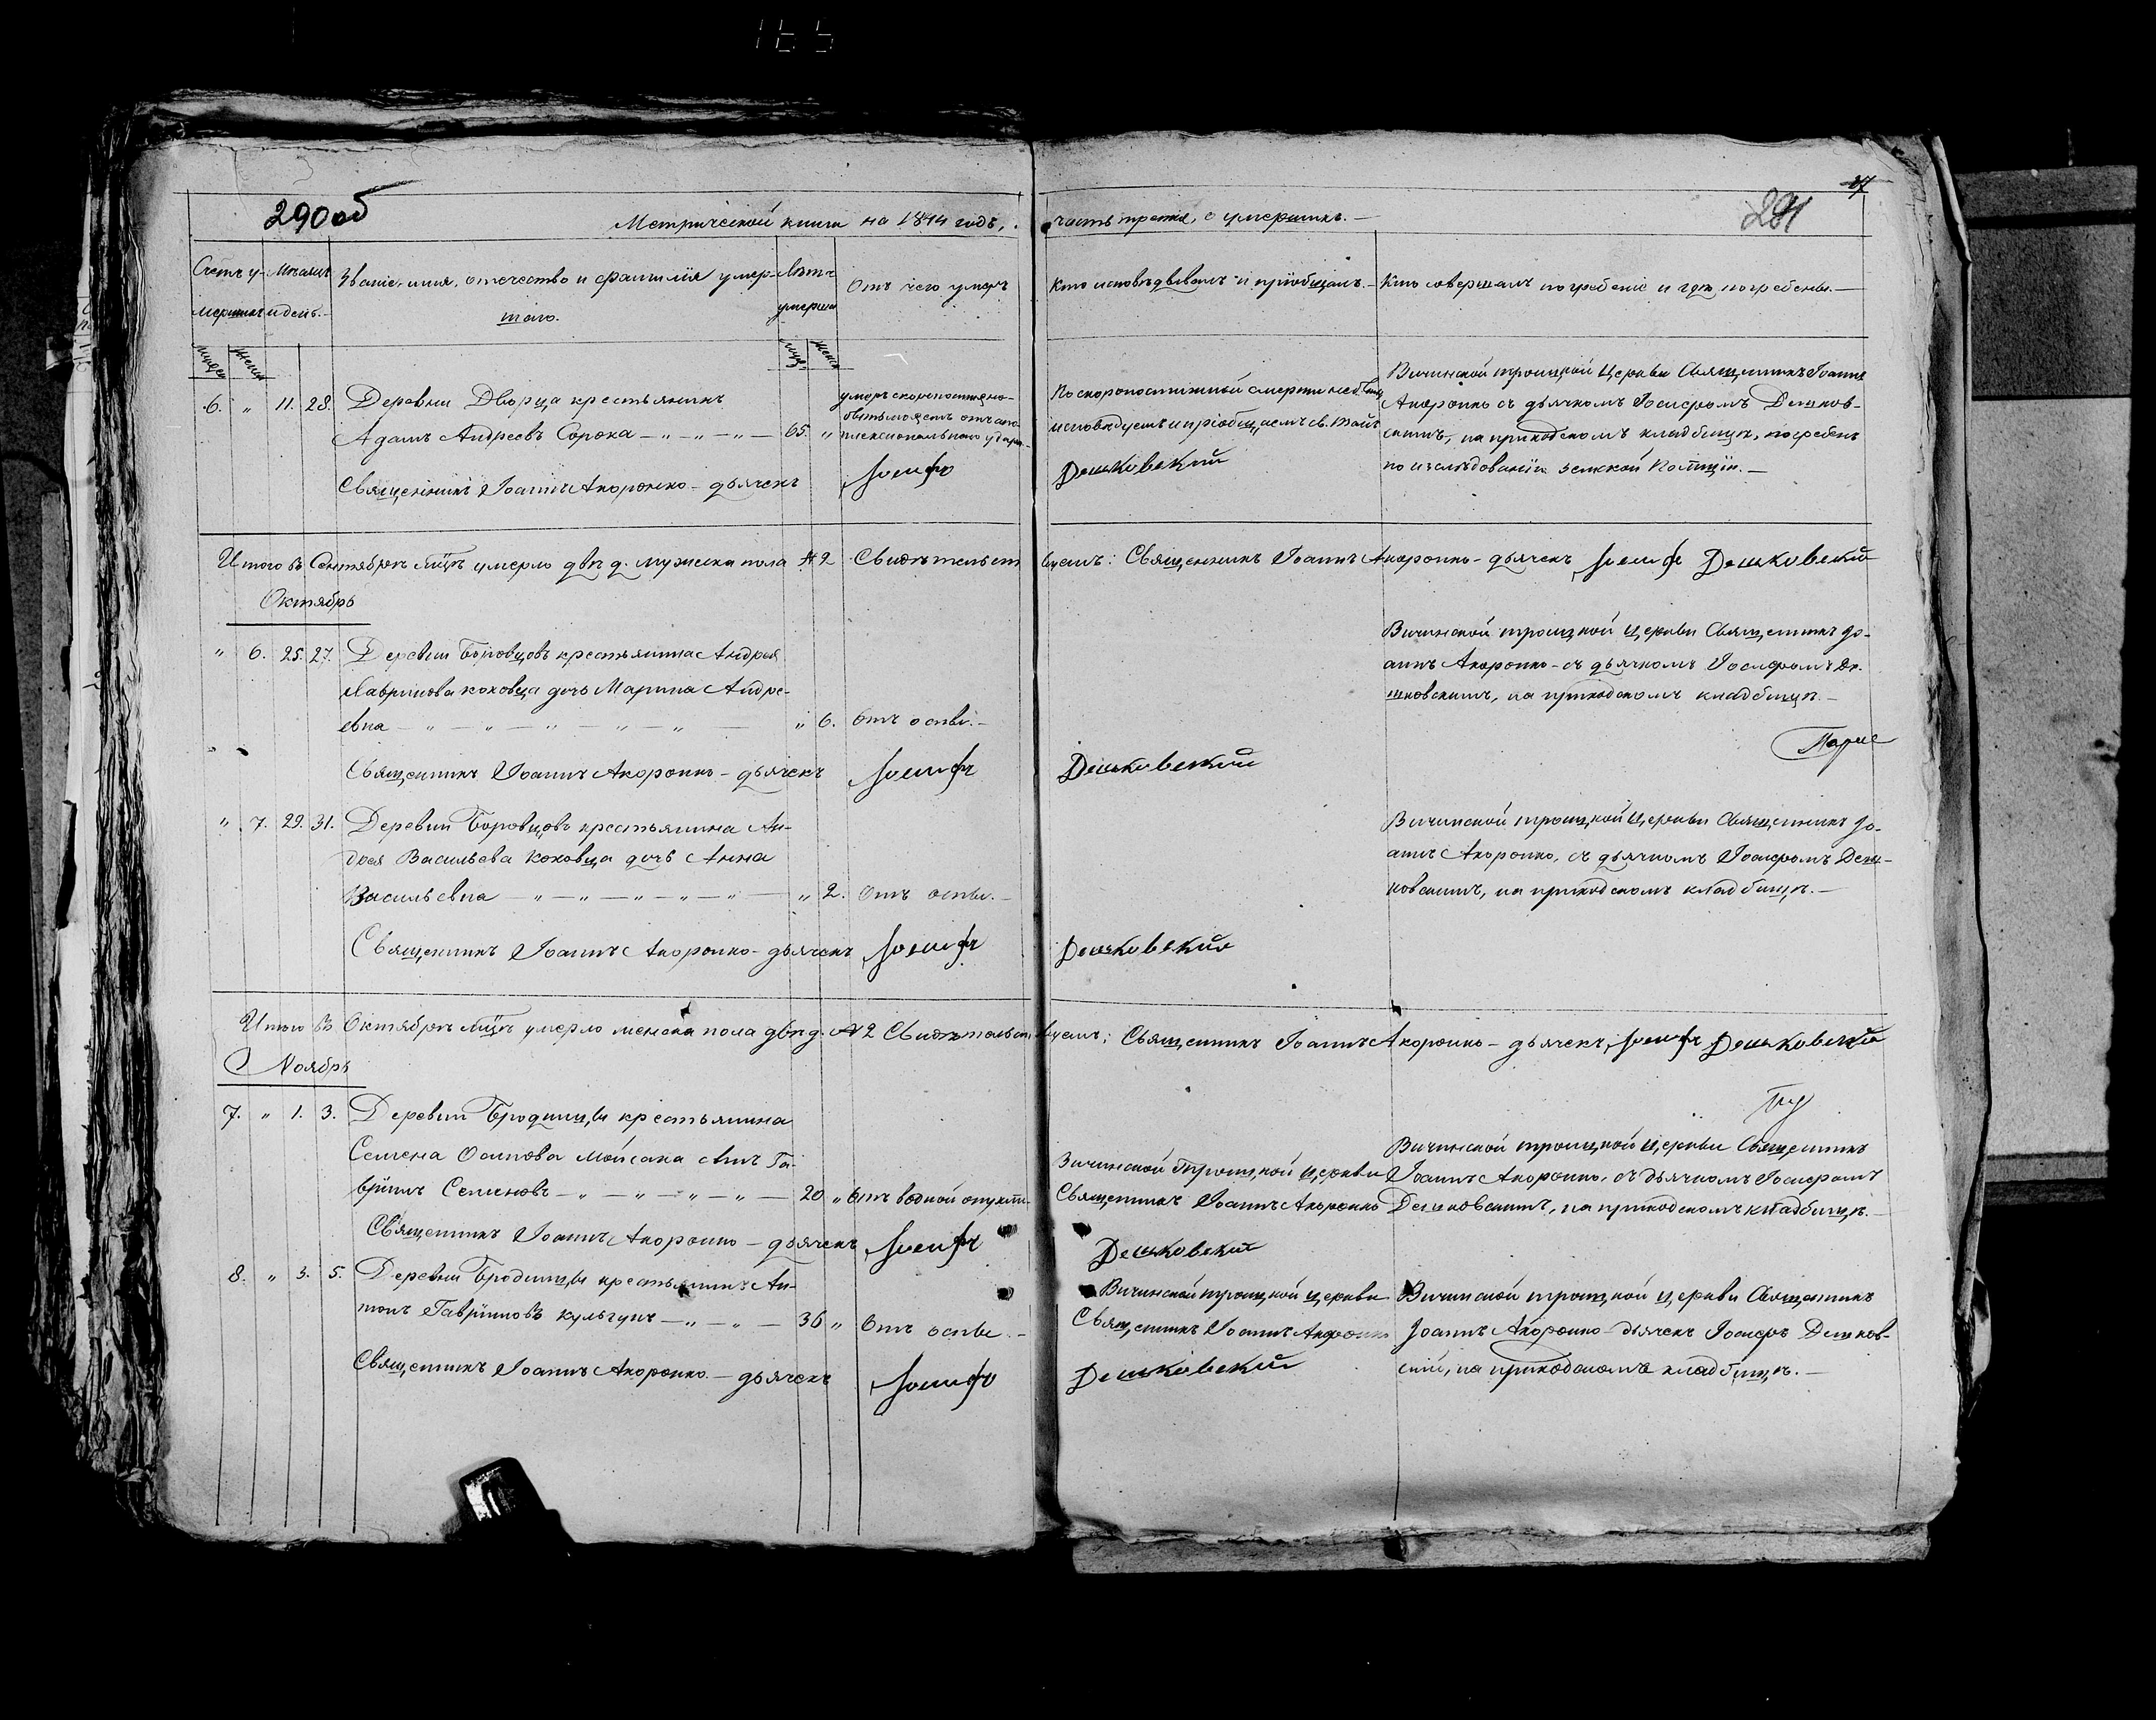 290 об
Метрической книги на 1844 годъ,
часть третья, о умершихъ.
291
Счетъ у-
мершихъ
Мѣсяцъ
и день.
Званіе, имя, отечество и фамилія умер-
шаго.
Лѣта
умерша
Отъ чего умеръ
Кто исповѣдывалъ и пріобщалъ.
Кто совершалъ погребеніе и гдѣ погребены.
6. " 11. 28. Деревни Дворца крестьянинъ
Адамъ Андреевъ Сорока — " — " — " — 65. "
умеръ скоропостижно
По скоропостижной смерти
исповѣдуемъ и пріобщаемъ св. Тайнъ
Вичинской троицкой Церкви Священникъ Іоаннъ
Акоронко съ дьячкомъ Іосифомъ Дешков-
скимъ, на приходскомъ кладбищѣ, погребенъ
по изслѣдованіи земской Полиціи. —
Священникъ Іоаннъ Акоронко - дьячекъ Іосифъ Дешковскій
Итого въ Сентябрѣ м̃цѣ умерло двѣ д. мужеска пола № 2 Свидѣтельствуемъ: Священникъ Іоаннъ Акоронко - дьячекъ Іосифъ Дешковскій
Октябрь
" 6. 25. 27. Деревни Боровцовъ крестьянина Андрея
Лавринова Коховца дочь Марина Андре-
евна — " — " — " — " — " — " 6. Отъ оспы. —
Вичинской троицкой церкви Священникъ Іо-
аннъ Акоронко - съ дьячкомъ Іосифомъ Де-
шковскимъ, на приходскомъ кладбищѣ. —
Священникъ Іоаннъ Акоронко - дьячекъ Іосифъ Дешковскій
" 7. 29. 31. Деревни Боровцовъ крестьянина Ан-
дрея Васильева Коховца дочь Анна
Васильевна — " — " — " — " — " — " 2. Отъ оспы. —
Вичинской троицкой Церкви Священникъ Іо-
аннъ Акоронко, съ дьячкомъ Іосифомъ Деш-
ковскимъ, на приходскомъ кладбищѣ. —
Священникъ Іоаннъ Акоронко - дьячекъ Іосифъ Дешковскій
Итого въ Октябрѣ м̃цѣ умерло женска пола двѣ д. № 2 Свидѣтельствуемъ: Священникъ Іоаннъ Акоронко - дьячекъ Іосифъ Дешковскій
Ноябрь
7. " 1. 3. Деревни Бродницы крестьянина
Семена Осипова Мойсака сынъ Га-
вріилъ Семеновъ — " — " — " — " — 20 " Отъ водной опухли.
Вичинской Троицкой церкви
Священникъ Іоаннъ Акоронко
Вичинской троицкой церкви Священникъ
Іоаннъ Акоронко, съ дьячкомъ Іосифомъ
Дешковскимъ, на приходскомъ кладбищѣ. —
Священникъ Іоаннъ Акоронко — дьячекъ Іосифъ Дешковскій
8. " 3. 5. Деревни Бродницы крестьянинъ Ан-
тонъ Гавріиловъ Кульгунъ — " — " — 36 " Отъ оспы. —
Вичинской троицкой церкви
Священникъ Іоаннъ Акоронко
Вичинской троицкой церкви Священникъ
Іоаннъ Акоронко - дьячекъ Іосифъ Дешков-
скій, на приходскомъ кладбищѣ. —
Священникъ Іоаннъ Акоронко. — дьячекъ Іосифъ Дешковскій